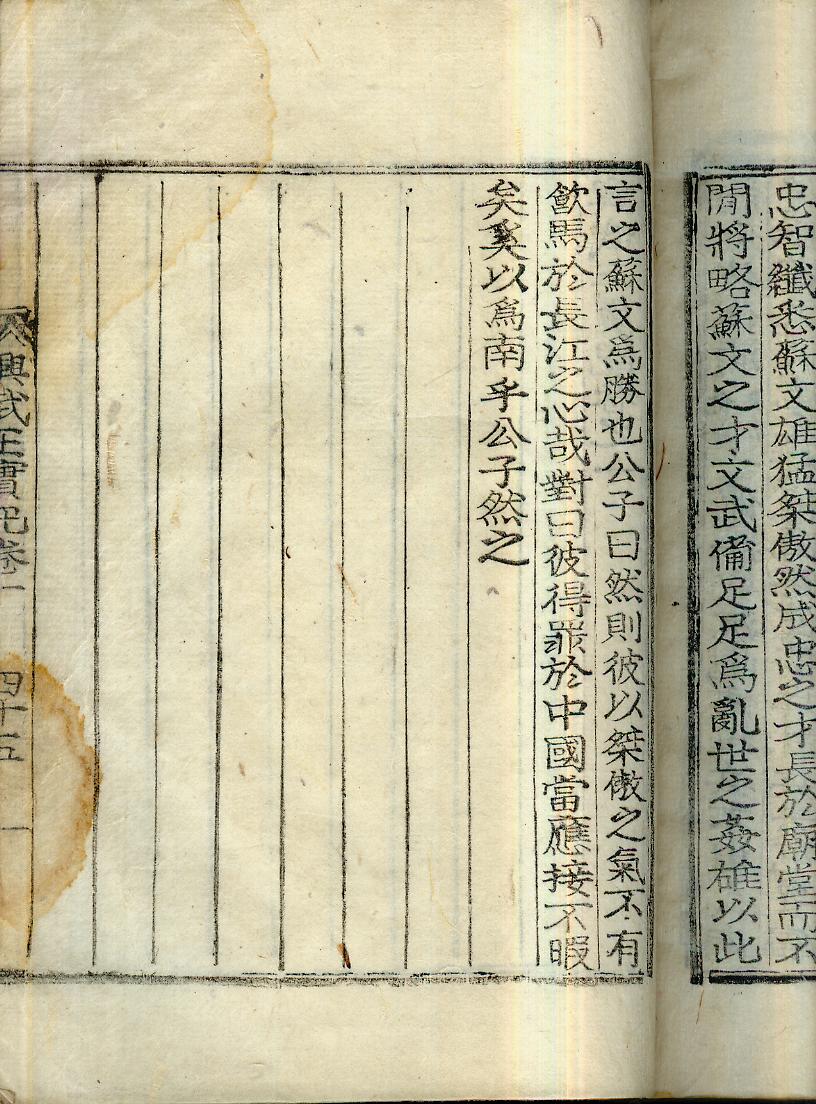 忠智纖悉蘇文雄猛桀傲然成忠之才長於廟堂而不
閒將略蘇文之才文武備足足爲亂世之姦雄以此
言之蘇文爲勝也公子曰然則彼以桀傲之氣不有
飮馬於長江之心哉對曰彼得罪於中國當應接不暇
矣奚以爲南乎公子然之
興武王實記卷一 四十五